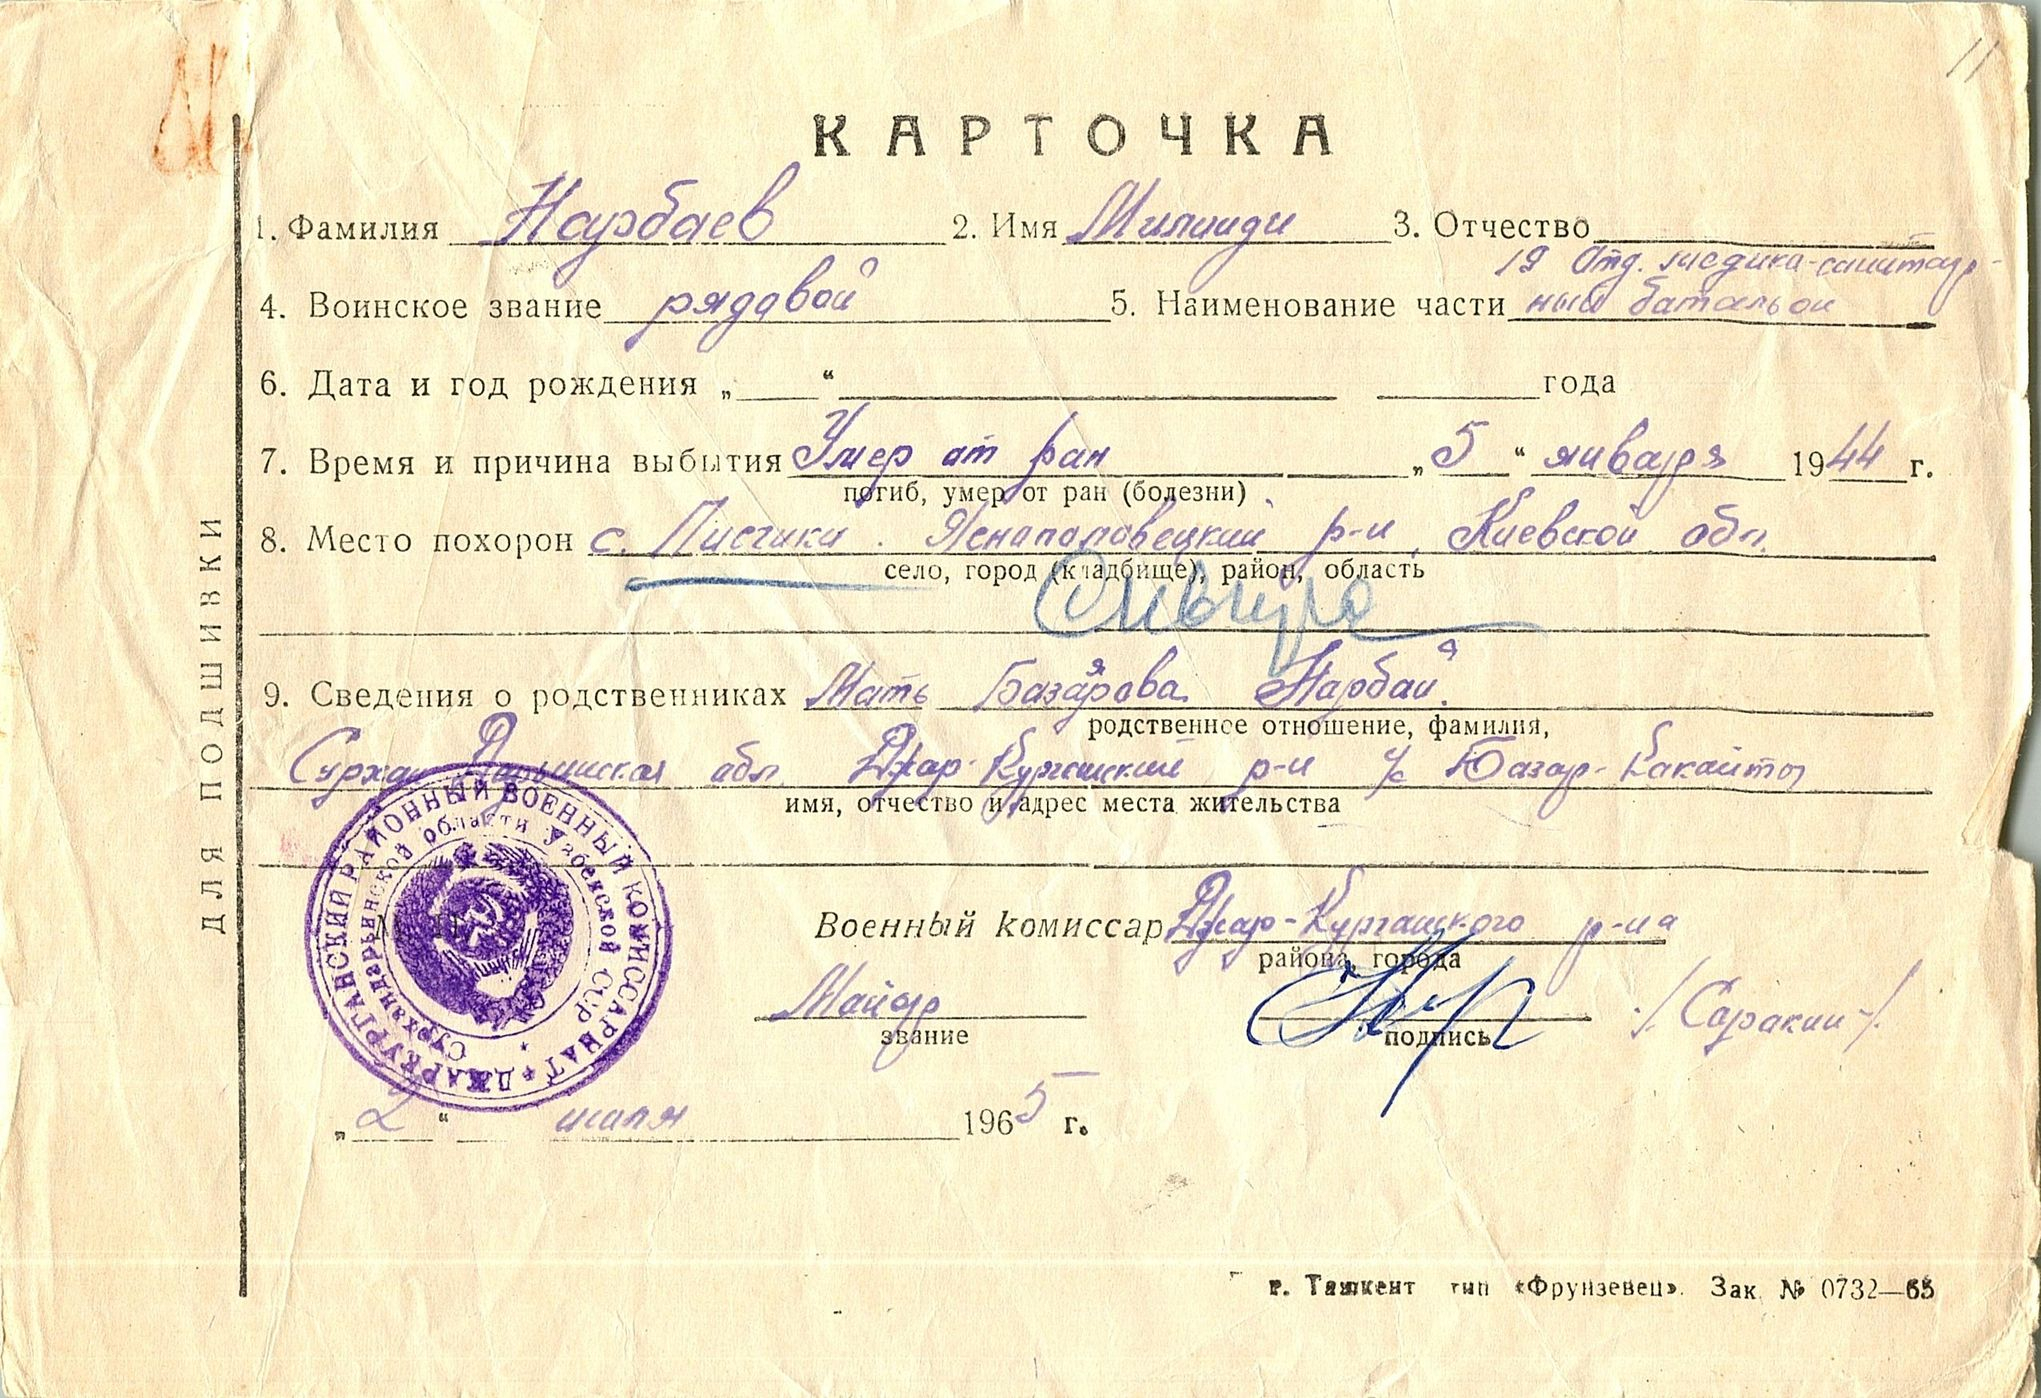 11
КАРТОЧКА
1. Фамилия Нарбаев 2. Имя 3. Отчество
19 Отд. медико-санитар-
4. Воинское звание рядовой 5. Наименование части ный батальон
6. Дата и год рождения „ “ года
7. Время и причина выбытия Умер от ран „5“ января 1944 г.
погиб, умер от ран (болезни)
8. Место похорон с. Писчики. р-н, Киевской обл.
село, город (кладбище), район, область
9. Сведения о родственниках Мать Базарова Нарбай
родственное отношение, фамилия,
Сурхан Дарьинская обл. Джар-Курганский р-н к/с Базар-Какайты
имя, отчество и адрес места жительства
Военный комиссар Джар-Курганского р-на
района, города
Майор /Саракин/
звание подпись
„2“ июля 1965 г.
ДЖАРКУРГАНСКИЙ РАЙОННЫЙ ВОЕННЫЙ КОМИССАРИАТ
Сурхандарьинской области Узбекской ССР
М. П.
ДЛЯ ПОДШИВКИ
г. Ташкент тип «Фрунзевец». Зак № 0732—65